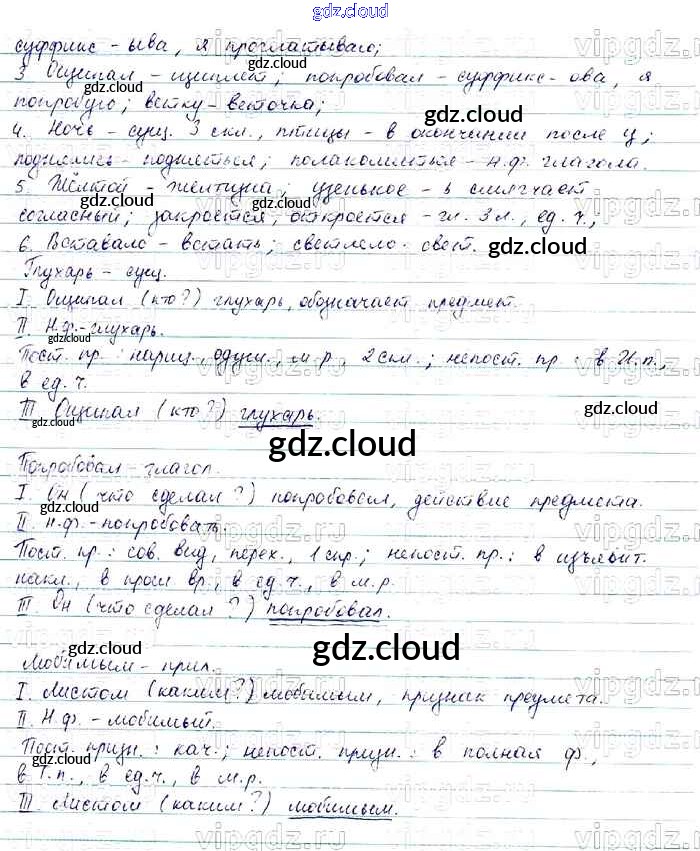 gdz.cloud
суффикс - ыва, я проглатываю;
3. Ощипал - щиплет; попробовал - суффикс - ова, я
попробую; ветку - веточка;
4. Ночь - сущ. 3 скл., птицы - в окончании после ц;
поднялись - подняться; полакомиться - н.ф. глагола.
5. Жёлтой - желтизна; узенькое - ь смягчает
согласный; закроется, откроется - гл. 3 л., ед. ч.;
6. Вставало - встать; светлело - свет.
Глухарь - сущ.
I. Ощипал (кто?) глухарь, обозначает предмет.
II. Н.ф. - глухарь.
Пост. пр.: нариц., одуш., м.р., 2 скл.; непост. пр.: в И.п.,
в ед. ч.
III Ощипал (кто?) глухарь.
Попробовал - глагол.
I. Он (что сделал?) попробовал, действие предмета.
II. н.ф. - попробовать.
Пост. пр.: сов. вид, перех., 1 спр.; непост. пр.: в изъявит.
накл., в прош вр., в ед. ч., в м.р.
III. Он (что сделал?) попробовал.
Любимым - прил.
I. Листом (каким?) любимым, признак предмета.
II. Н.ф. - любимый.
Пост. призн.: кач.; непост. призн.: в полная ф.,
в Т.п., в ед. ч., в м.р.
III. Листом (каким?) любимым.